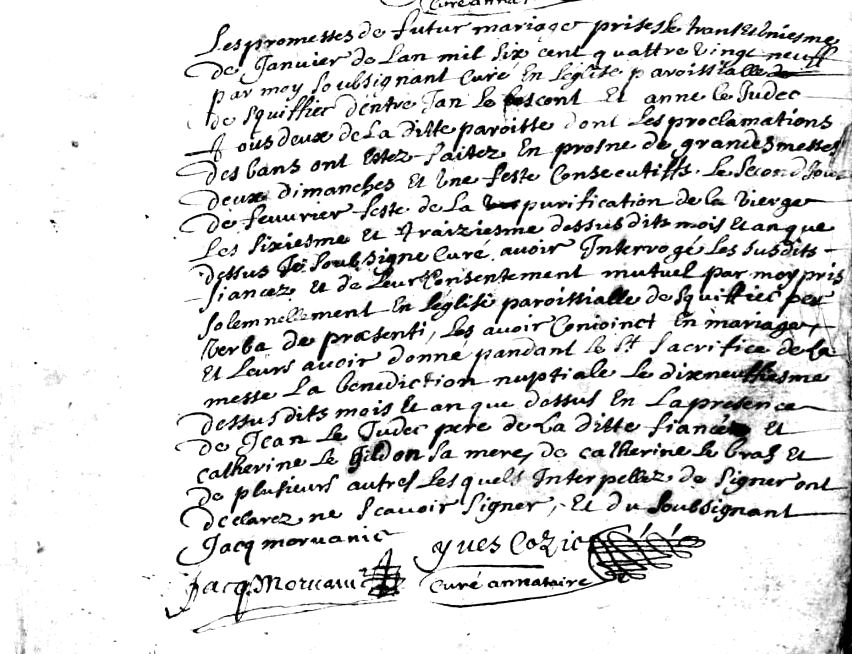 curé anna
Les promesses de futur mariage prises le trant et uniesme
de Janvier de Lan mil six cent quattre vingt neuff
par moy soubsignant Curé En leglise paroissialle de
de Squiffiec dentre Jan le bescont Et anne le Judec
Tous deux de La ditte paroisse dont Les proclamations
des bans ont Estez faitez En prosne de grandes messes
deux dimanches Et Une feste Consecutiffs. Le Second Jour
de feuvrier feste de La purification de La Vierge
Les sixiesme Et traiziesme dessusdits mois Et an que
dessus Je soubsigne Curé avoir Interrogé Les susdits
fiancez Et de Leur Consentement mutuel par moy pris
solemnellement En leglise paroissialle de Squiffiec per
verba de præsenti, Les avoir Conioinct En mariage,
Et Leurs avoir donne pandant le St Sacrifice de La
messe La benediction nuptiale Le dixneuffiesme
dessusdits mois Et an que dessus En La presence
de Jean Le Judec pere de La ditte fiancée Et
Catherine Le Sa mere, de Catherine Le bras Et
de plusieurs autres Lesquels Interpellez de Signer ont
declarez ne Scavoir Signer, Et du Soubsignant
Jacq morvanic
yves Cozic
Jacq. Morvanic
Curé annataire